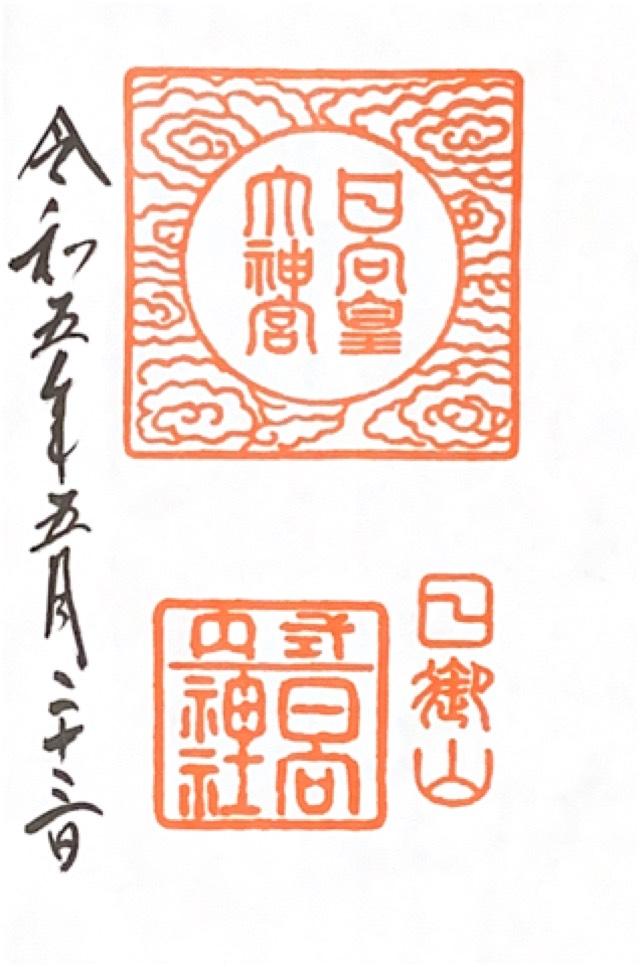 日向皇
大神宮
日御山
式内
日向
神社
令和五年五月二十三日